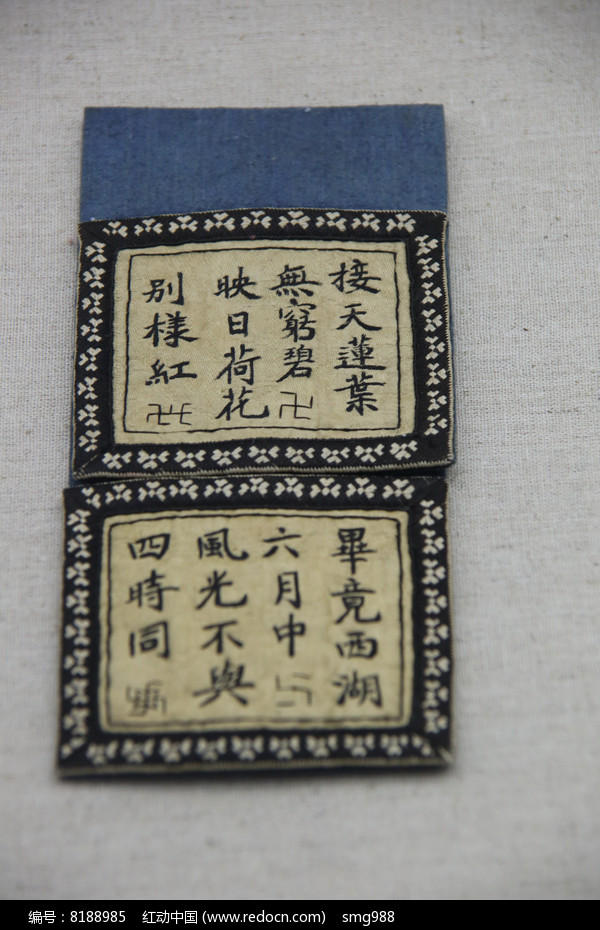 接天蓮葉
無窮碧卍
映日荷花
別樣紅
畢竟西湖
六月中卍
風光不與
四時同
编号：8188985 红动中国 (www.redocn.com) smg988